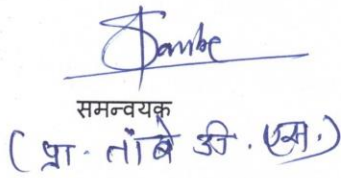 Tambe
समन्वयक
( प्रा. तांबे डी. एस. )